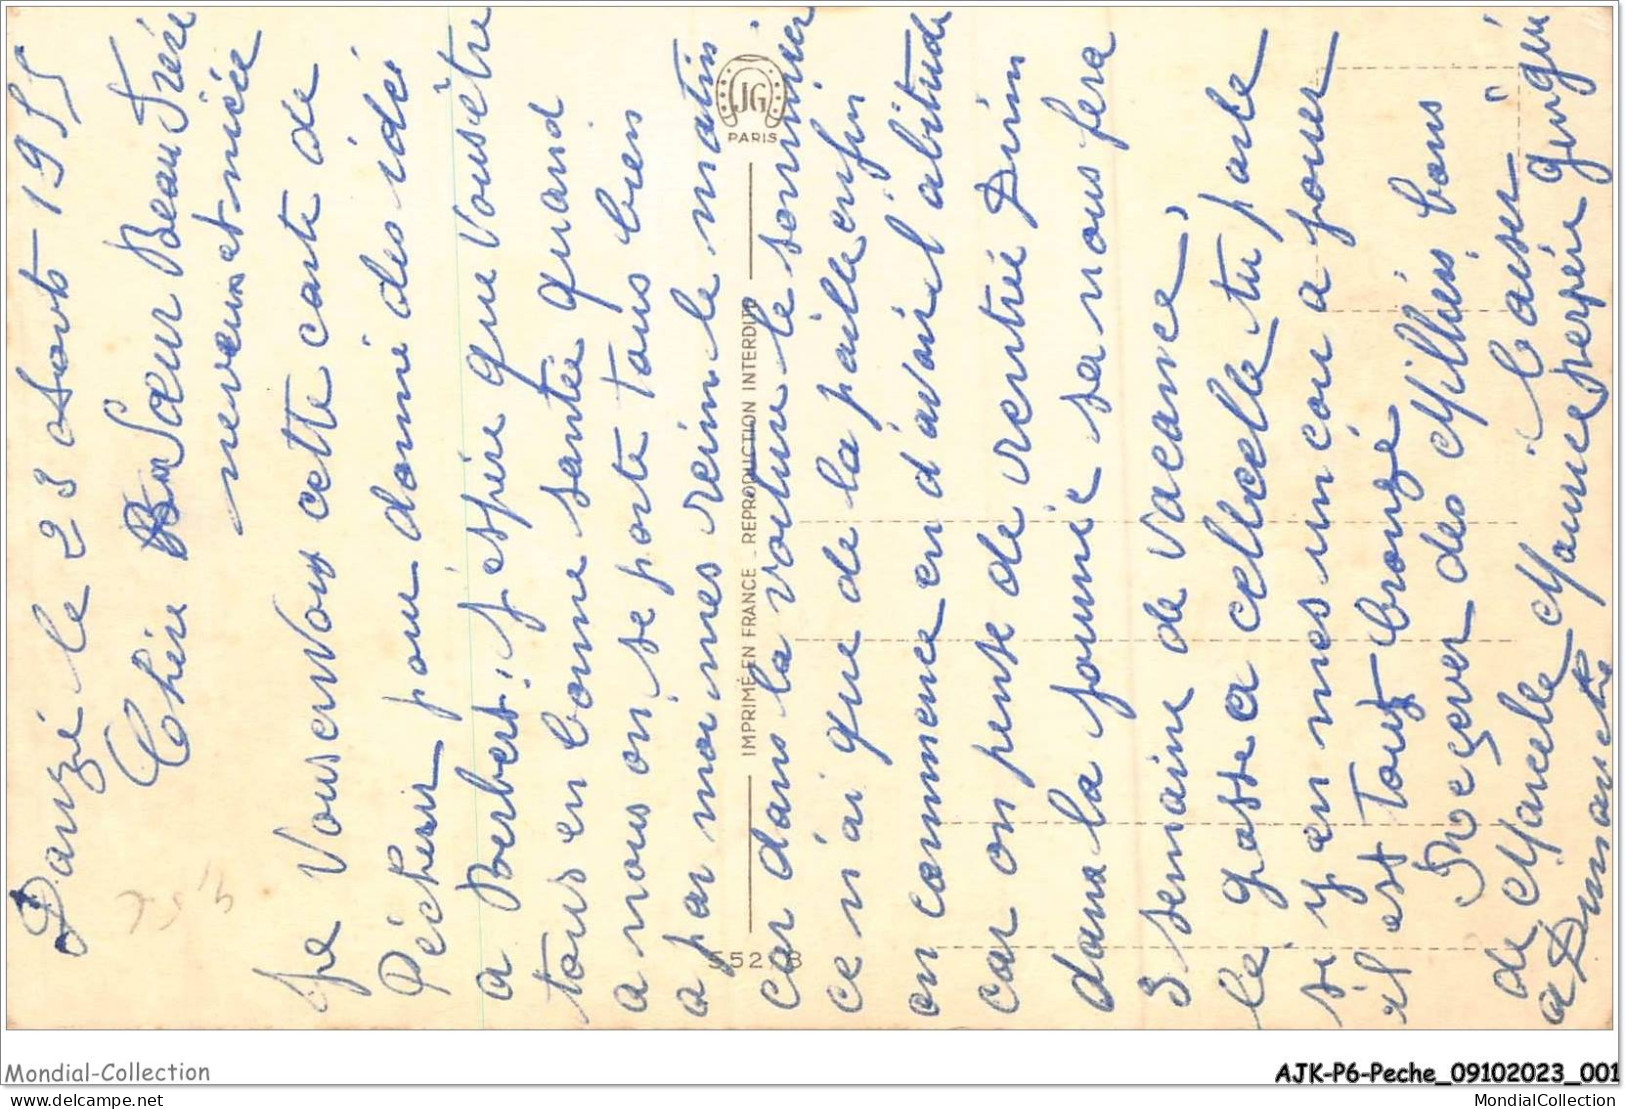 Danzé le 23 Aout 1955
Chère Sœur Beau Frère
neveux et nièce
Je Vous envoi cette carte de
Pécheur pour donné des idée
a Berbert, j'espère que Vous ètre
tous en bonne santée quand
a nous on se porte tous bien
a par moi mes reim le matin
car dans la voiture le sommier
ce n'ai que de la paille enfin
on commence en d'avoir l'abitude
car on pense de rentrié Dim
dans la journié sa nous fera
3 semaine de Vacance,
le gosse a cellecelle tu parle
si y en mes un cou a jouer
il est tout bronzé
Recever des Millié bons
de Marcelle Maurice baiser
a Dimanche
JG
PARIS
IMPRIMÉ EN FRANCE - REPRODUCTION INTERDITE
Mondial-Collection
AJK-P6-Peche_09102023_001
delcampe.net
MondialCollection